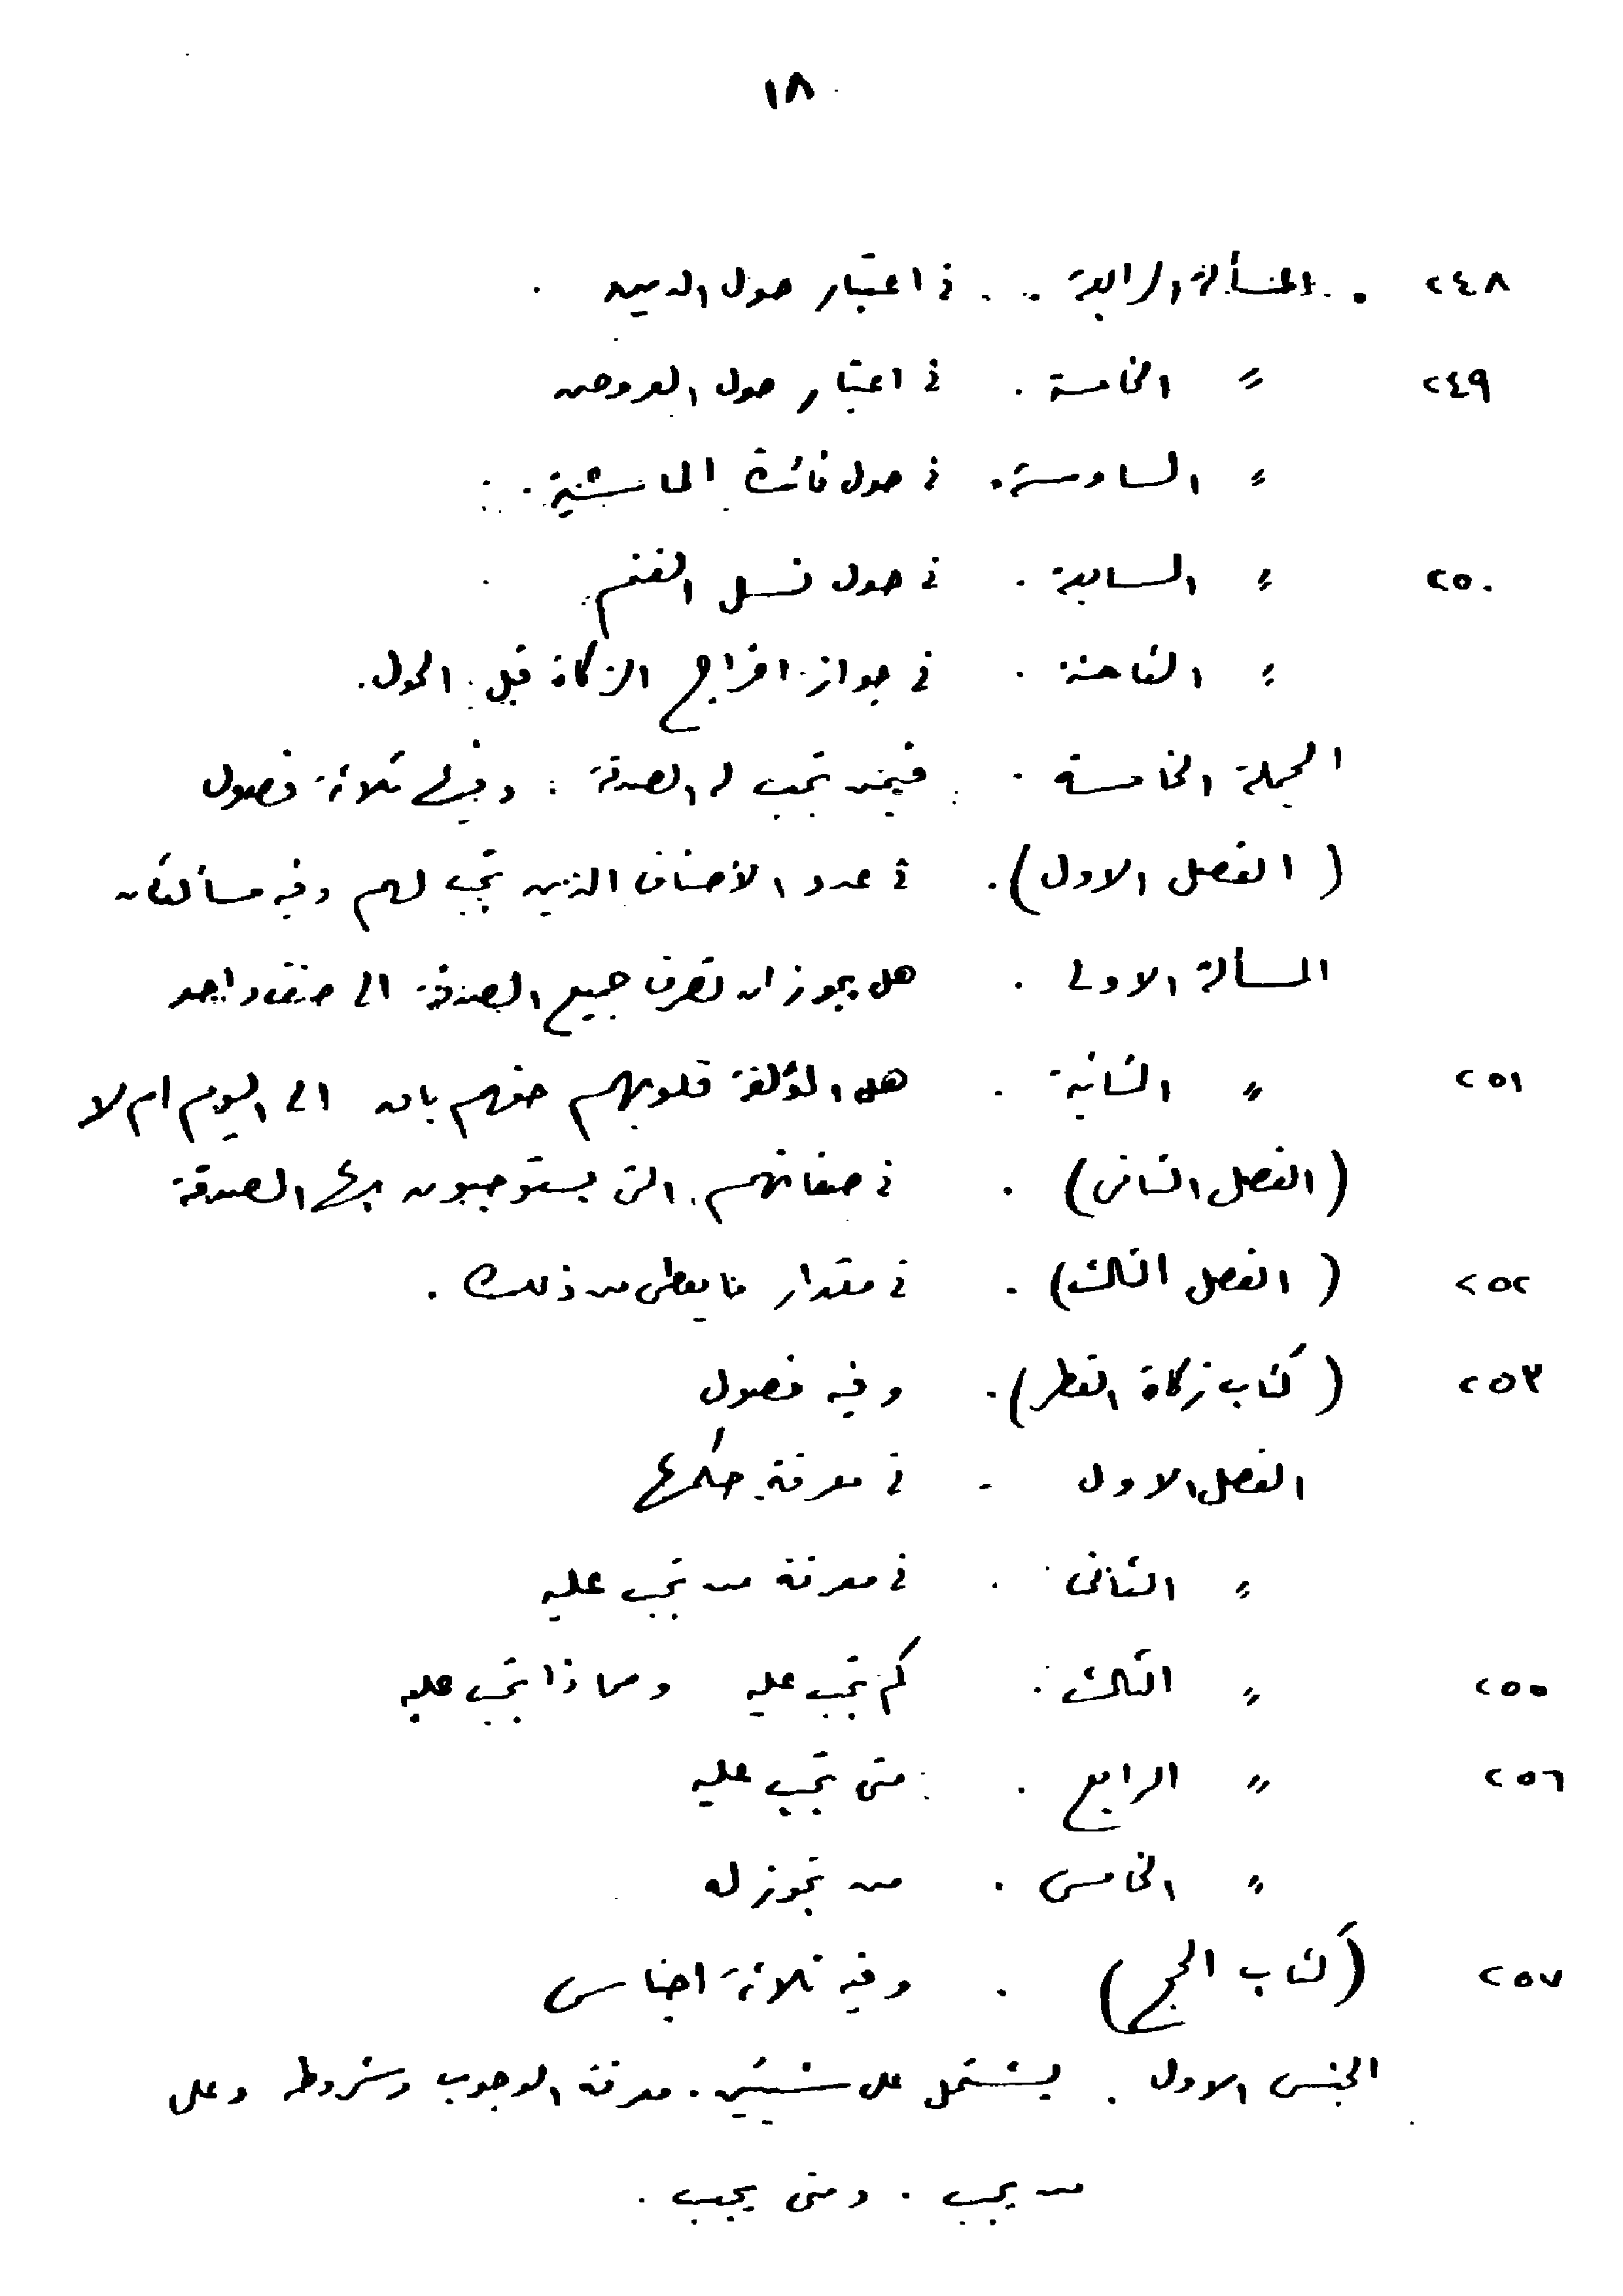 ١٨
٢٤٨ . المسألة الرابعة . . في اعتبار حول الدين .
٢٤٩ 〃 الخامسة . في اعتبار حول العروض
〃 السادسة . في حول فائدة الماشية .
٢٥٠ 〃 السابعة . في حول نسل الغنم .
〃 الثامنة . في جواز اخراج الزكاة قبل الحول .
الجملة الخامسة . فيمن تجب له الصدقة : وفيها ثلاثة فصول
( الفصل الاول ) . في عدد الأصناف الذين تجب لهم وفيه مسألتان
المسألة الاولى . هل يجوز ان تصرف جميع الصدقة الى صنف واحد
٢٥١ 〃 الثانية . هل المؤلفة قلوبهم حقهم باق الى اليوم ام لا
( الفصل الثاني ) . في صفاتهم التي يستوجبون بها الصدقة
٢٥٢ ( الفصل الثالث ) . في مقدار ما يعطى من ذلك .
٢٥٣ ( كتاب زكاة الفطر ) . وفيه فصول
الفصل الاول . في معرفة حكمها
〃 الثاني . في معرفة من تجب عليه
٢٥٥ 〃 الثالث . كم تجب عليه ومماذا تجب عليه
٢٥٦ 〃 الرابع . متى تجب عليه
〃 الخامس . من تجوز له
٢٥٧ ( كتاب الحج ) . وفيه ثلاثة اجناس
الجنس الاول . يشتمل على شيئين . معرفة الوجوب وشروطه وعلى
من يجب . ومتى يجب .